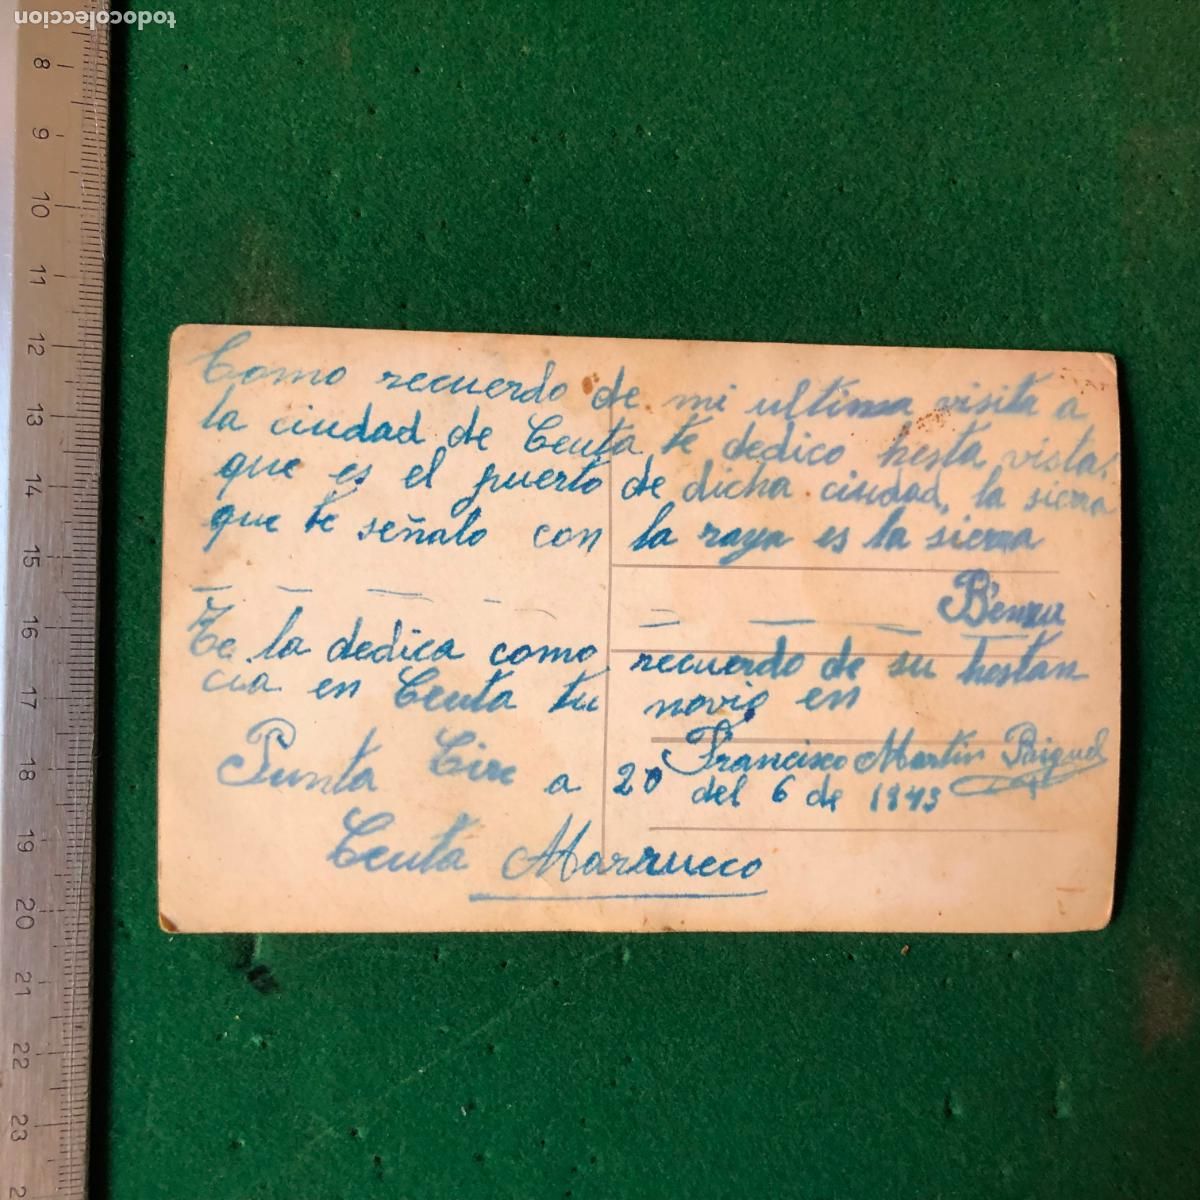 todocoleccion
8
9
10
11
12
13
14
15
16
17
18
19
20
21
22
23
2
Como recuerdo de mi ultima visita a
la ciudad de Ceuta te dedico hesta vista,
que es el puerto de dicha ciudad, la sierra
que te señalo con la raya es la sierra
Benzu
Te la dedica como recuerdo de su hestan
cia en Ceuta tu novio en
Francisco Martin
Punta a 20 del 6 de 1943
Ceuta Marrueco